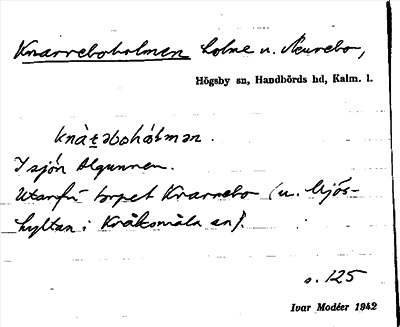 Knarreboholmen holme u. Åkurebo,
Högsby sn, Handbörds hd, Kalm. l.
knàṟəbohålmən.
I sjön Algunnen.
Utanför torpet Knarrebo (u. Mjös-
hyltan i Kråksmåla sn).
s. 125
Ivar Modéer 1942